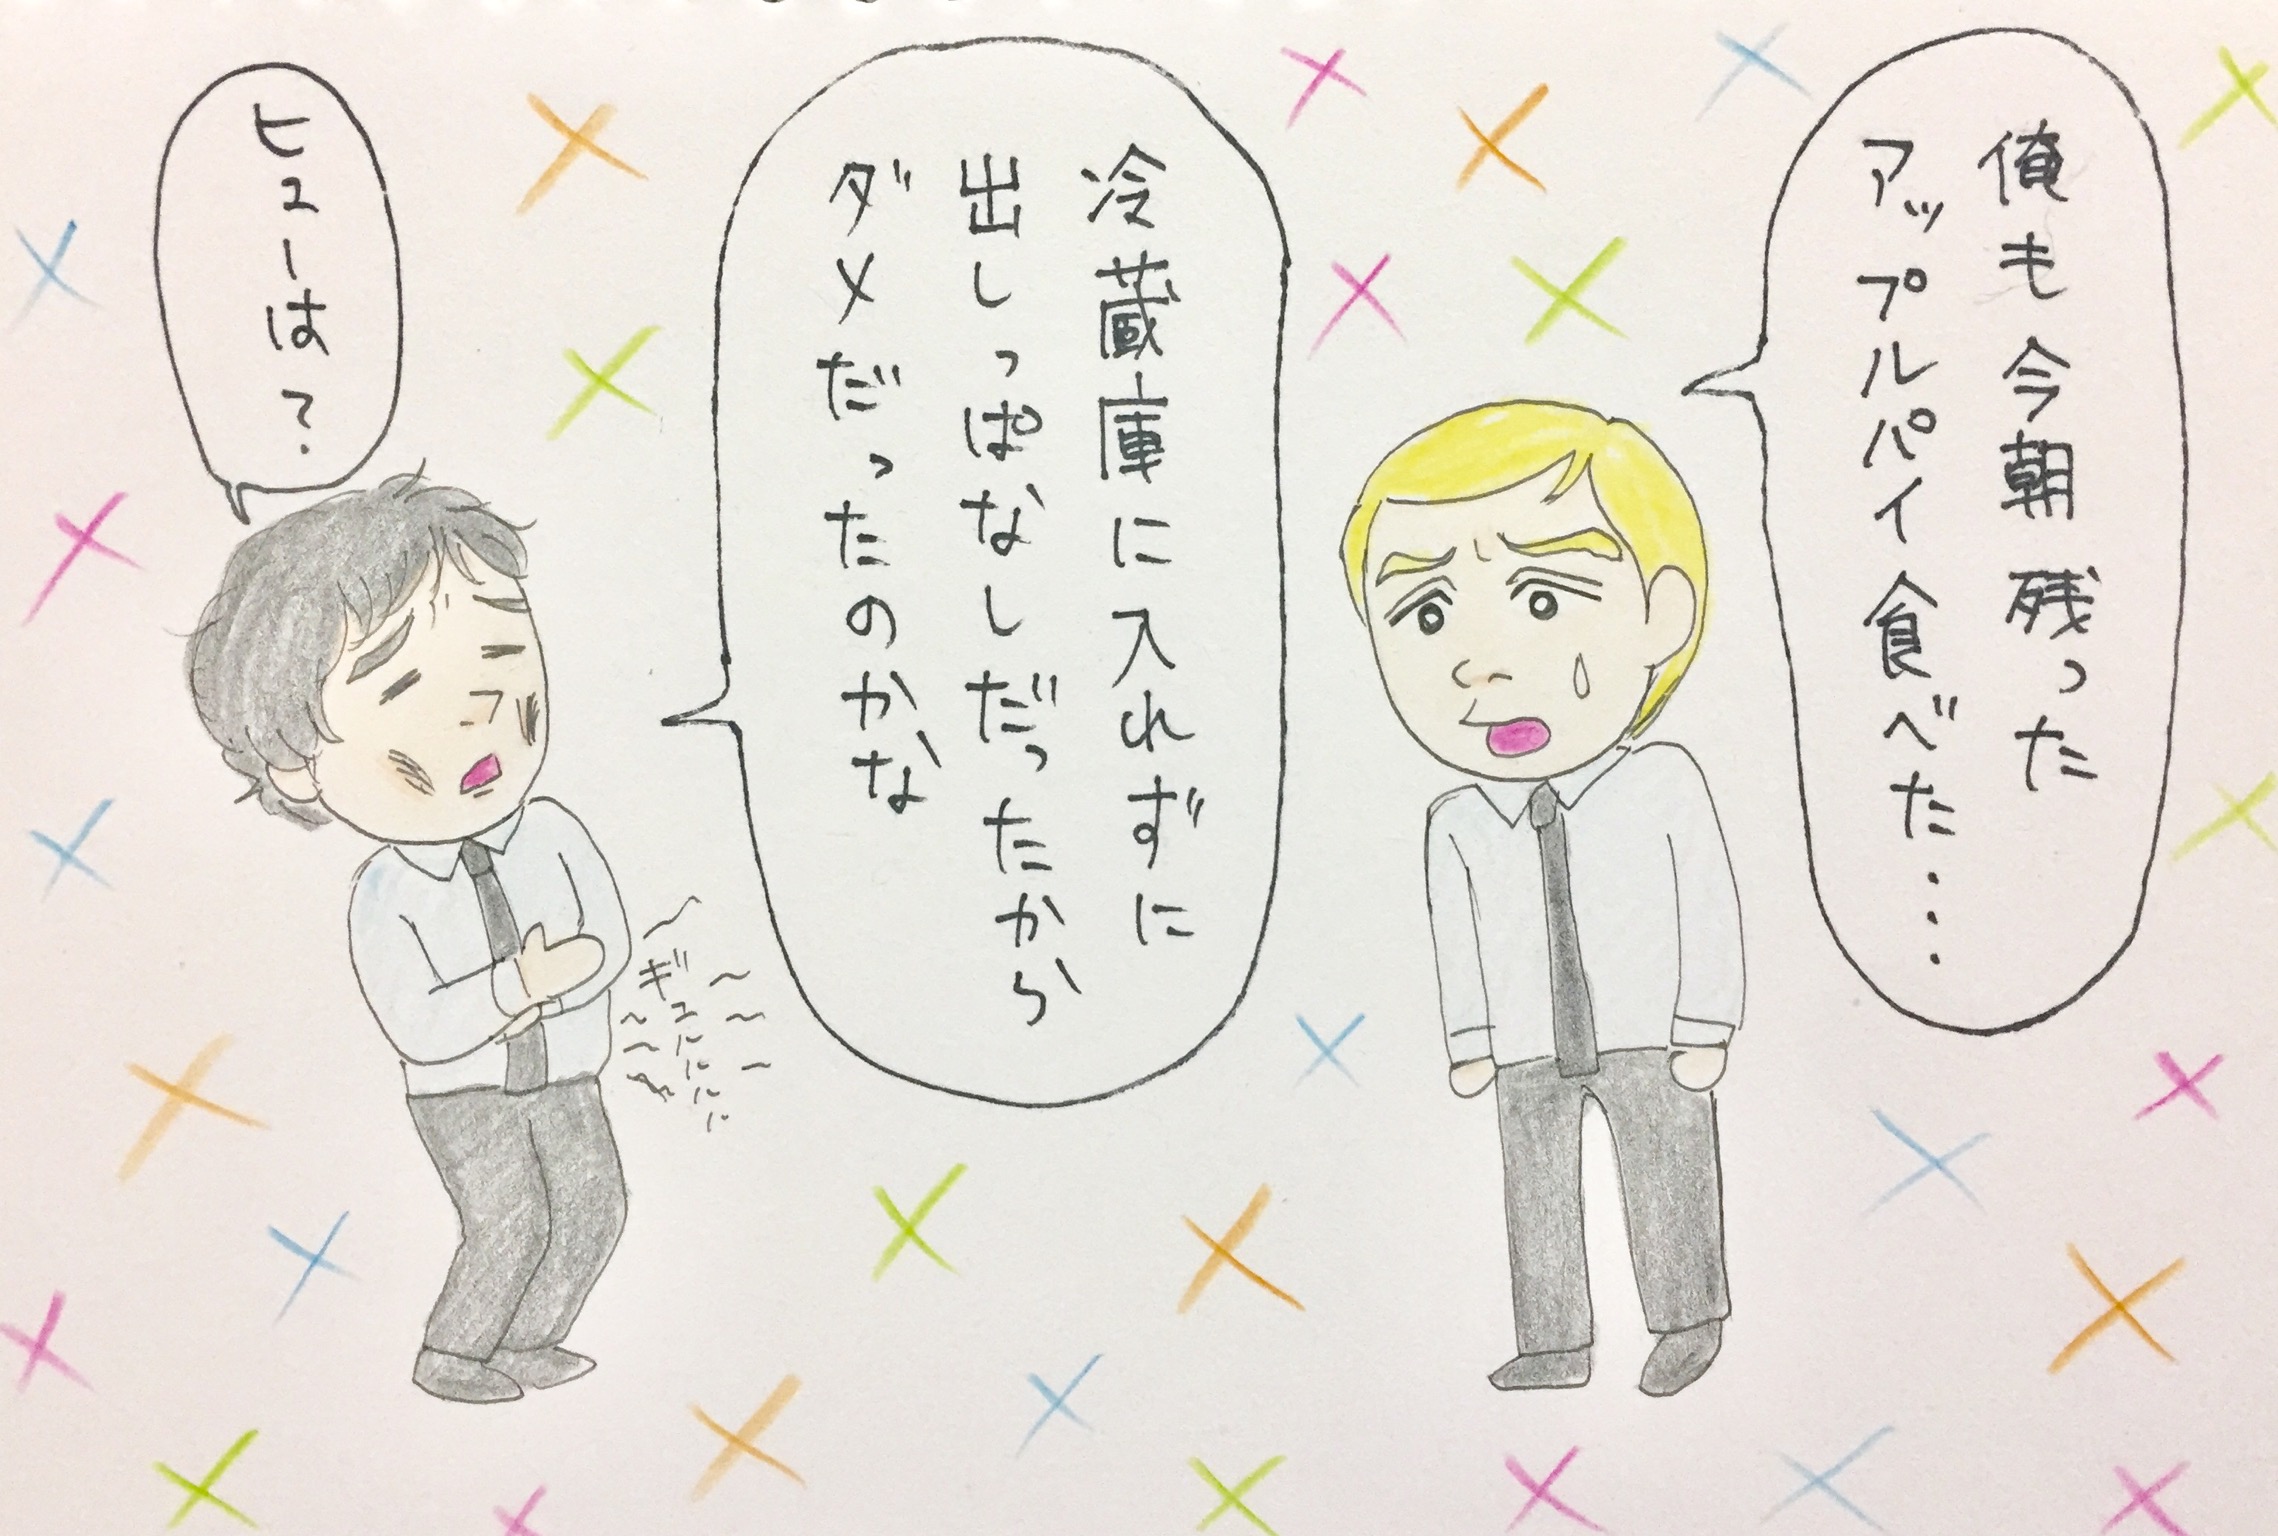 俺も今朝残った
アップルパイ食べた・・・
冷蔵庫に入れずに
出しっぱなしだったから
ダメだったのかな
ヒューは?
ギュルルルル